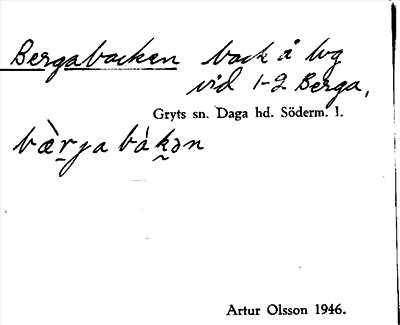 Bergabacken back å lvg
vid 1-2 Berga,
Gryts sn. Daga hd. Söderm. l.
bæ̀r̠ja bákən
Artur Olsson 1946.